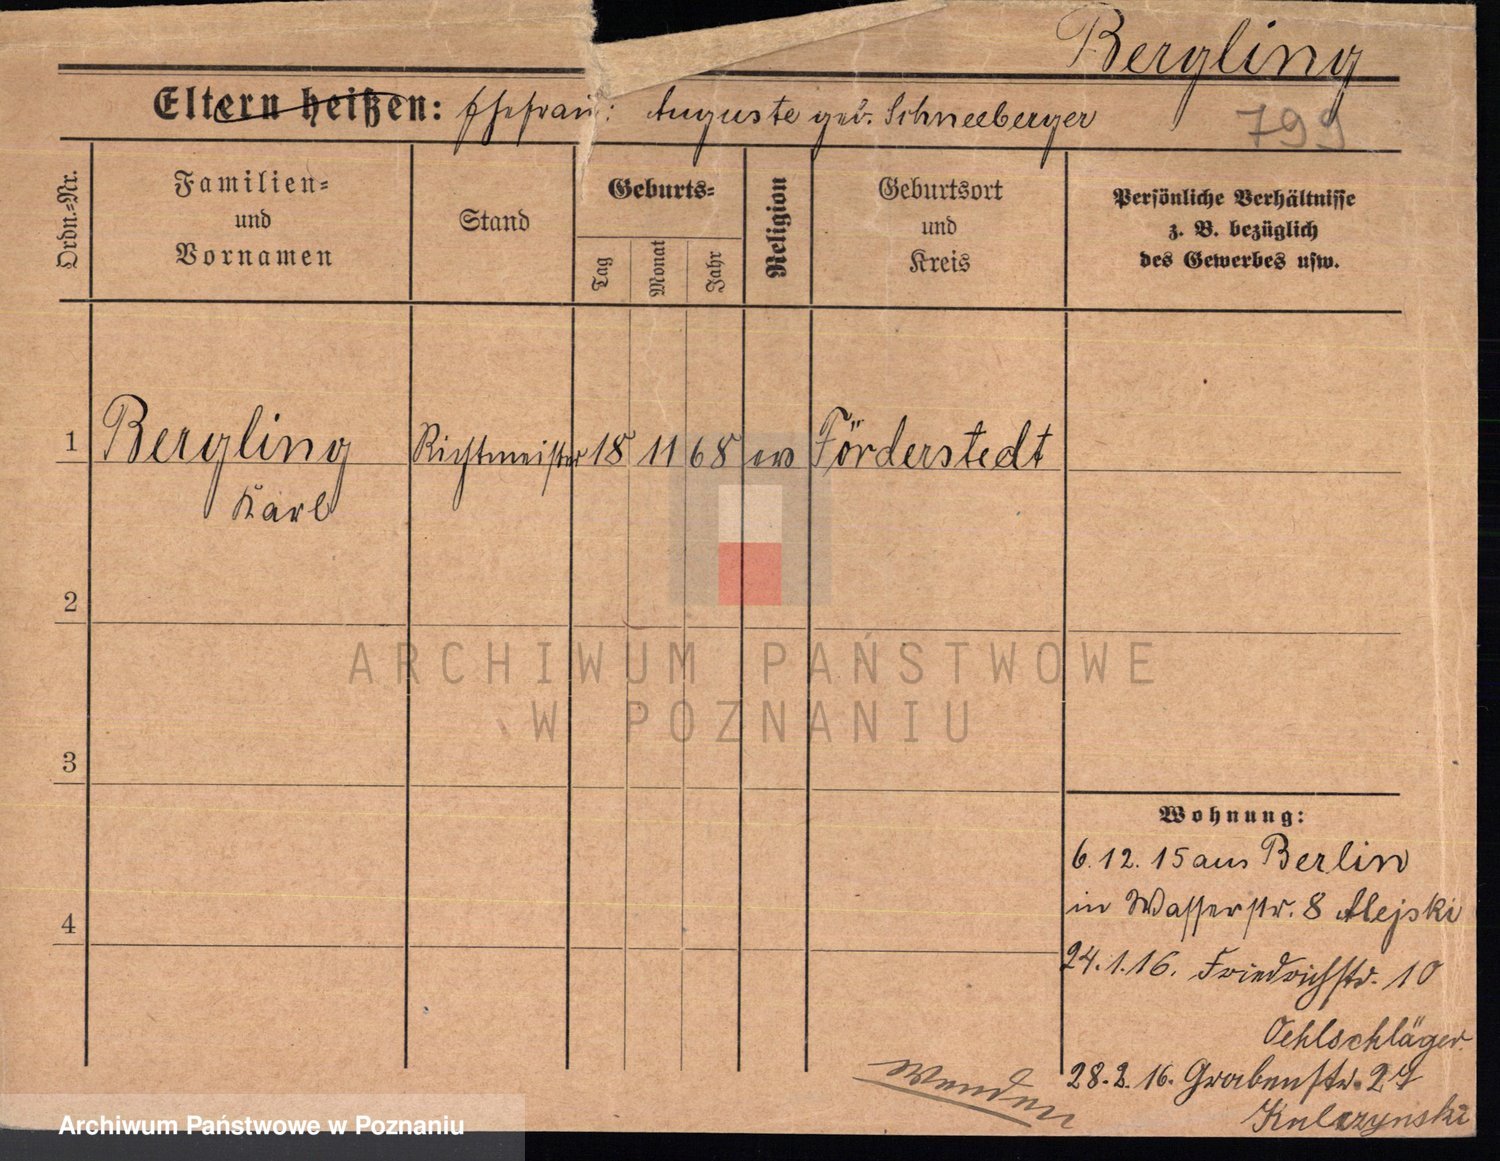 Bergling
Eltern heißen: Ehefrau: Auguste geb. Schneeberger
799
Ordn.=Nr.
Familien=
und
Vornamen
Stand
Geburts=
Tag
Monat
Jahr
Religion
Geburtsort
und
Kreis
Persönliche Verhältnisse
z. B. bezüglich
des Gewerbes usw.
1 Bergling Richtmeister 18 11 68 ev Förderstedt
Karl
2
3
4
Wohnung:
6. 12. 15 aus Berlin
in Wasserstr. 8 Alejski
24. 1. 16. Friedrichstr. 10
Oehlschläger
28. 2. 16. Grabenstr. 27
Kulczynski
Wenden
ARCHIWUM PAŃSTWOWE
W POZNANIU
Archiwum Państwowe w Poznaniu